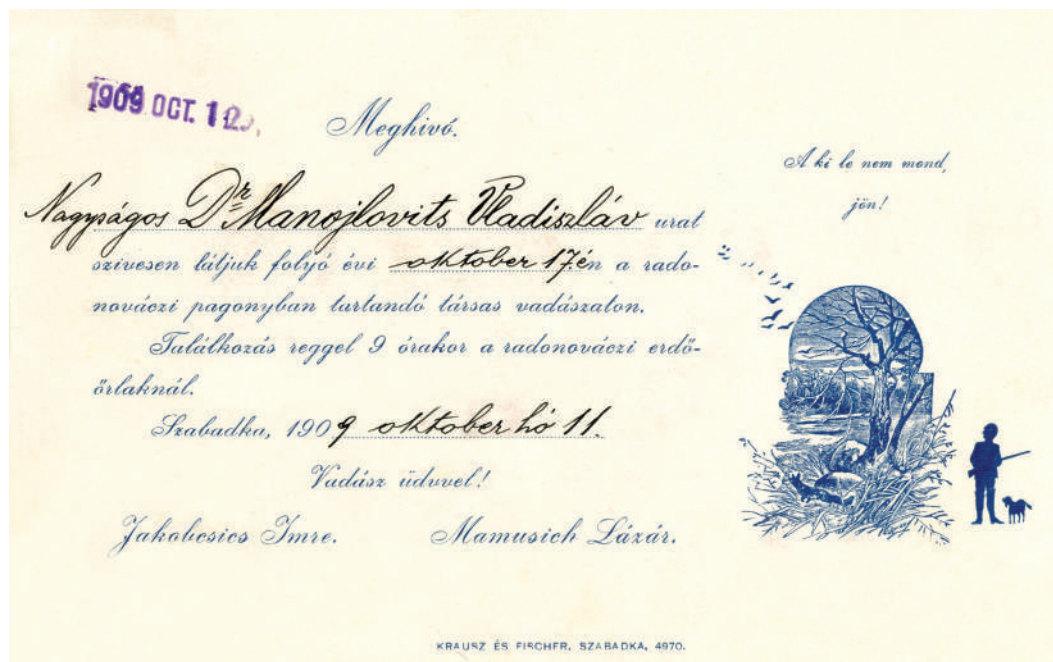 1909 OCT. 12.
Meghivó.
A ki le nem mond,
jön!
Nagyságos Dr Manojlovits Vladiszláv urat
szivesen látjuk folyó évi október 17.én a rado-
nováczi pagonyban tartandó társas vadászaton.
Találkozás reggel 9 órakor a radonováczi erdő-
őrlaknál.
Szabadka, 1909 oktober hó 11.
Vadász üdvvel!
Jakobcsics Imre. Mamusich Lázár.
KRAUSZ ÉS FISCHER, SZABADKA, 4970.